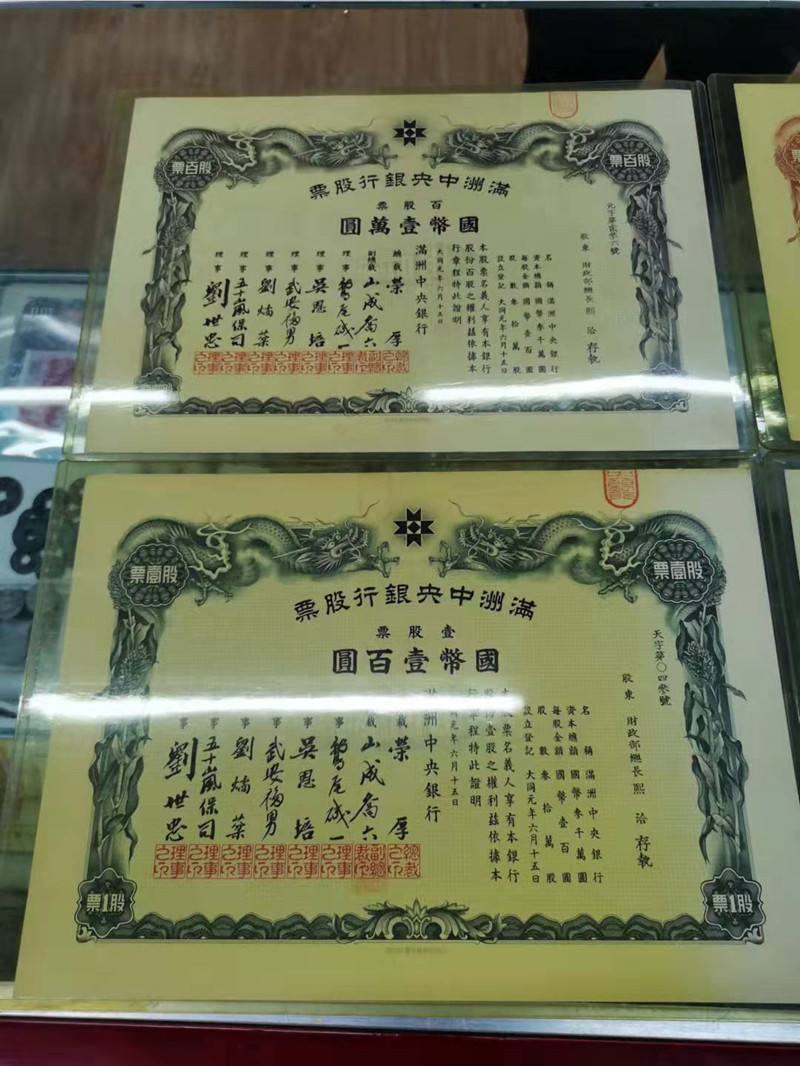 股百票
股百票
滿洲中央銀行股票
百股票
國幣壹萬圓
股東 財政部總長 熙 洽 存執
名稱 滿洲中央銀行
資本總額 國幣參千萬圓
每股金額 國幣壹百圓
股數 參拾萬股
設立登記 大同元年六月十五日
本股票名義人享有本銀行
股份百股之權利茲依據本
行章程特此證明
大同元年六月十五日
滿洲中央銀行
總裁 榮厚
副總裁 山成喬六
理事 鷲尾磯一
理事 吳恩培
理事 武安福男
理事 劉燏棻
理事 五十嵐保司
理事 劉世忠
股壹票
股壹票
滿洲中央銀行股票
壹股票
國幣壹百圓
天字第〇四參號
股東 財政部總長 熙 洽 存執
名稱 滿洲中央銀行
資本總額 國幣參千萬圓
每股金額 國幣壹百圓
股數 參拾萬股
設立登記 大同元年六月十五日
本股票名義人享有本銀行
股份壹股之權利茲依據本
行章程特此證明
元年六月十五日
滿洲中央銀行
榮厚
山成喬六
鷲尾磯一
吳恩培
武安福男
劉燏棻
五十嵐保司
劉世忠
總裁之印
副總裁印
理事之印
理事之印
理事之印
理事之印
理事之印
理事之印
股1票
股1票